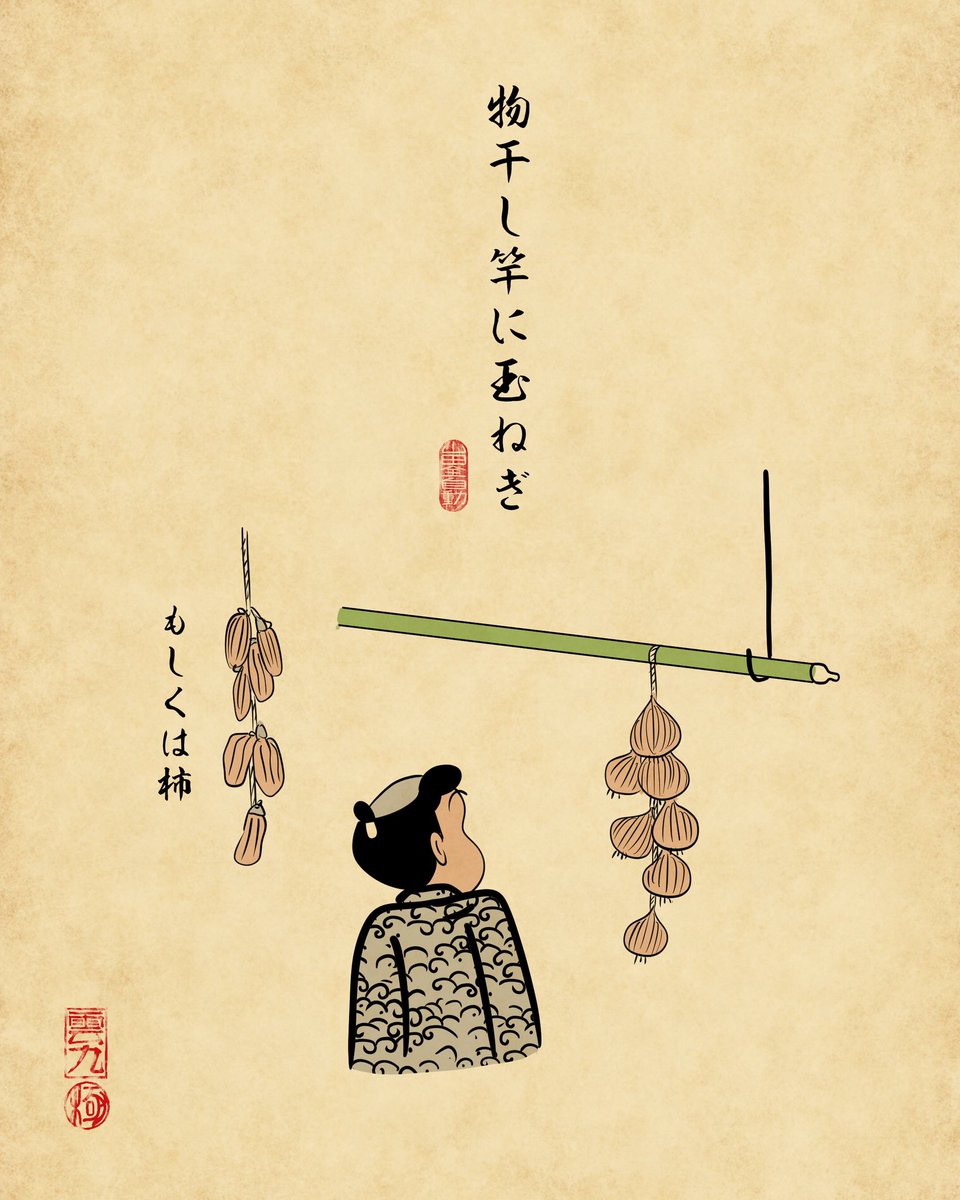 物干し竿に玉ねぎ
もしくは柿